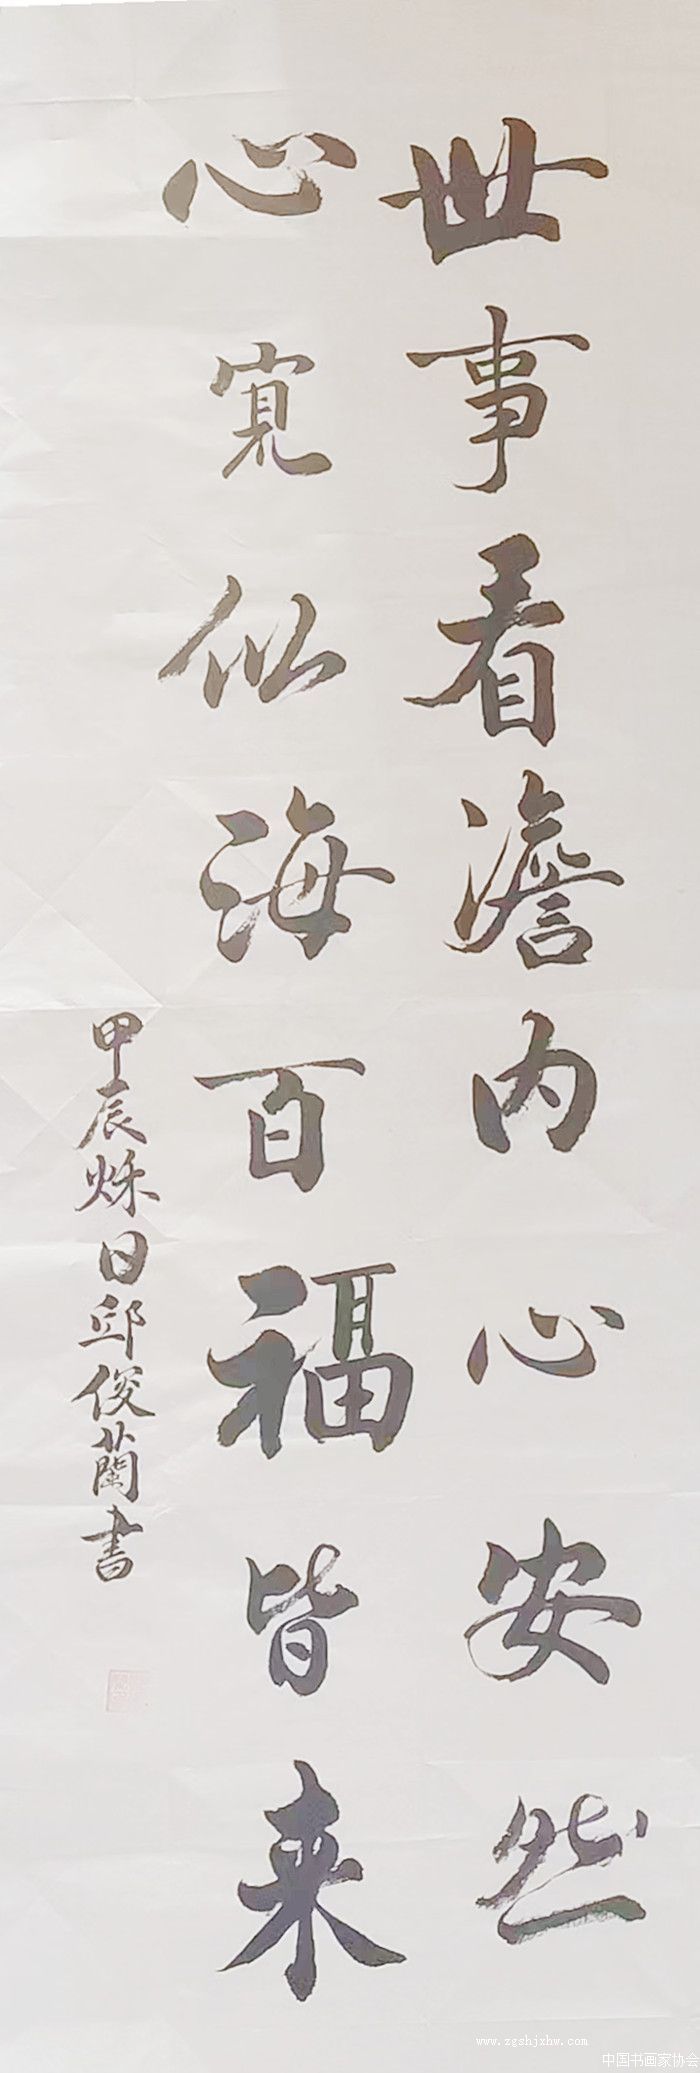 世事看澹内心安然
心寛似海百福皆来
甲辰烁日邱俊蘭書
www.zgshjxhw.com
中国书画家协会